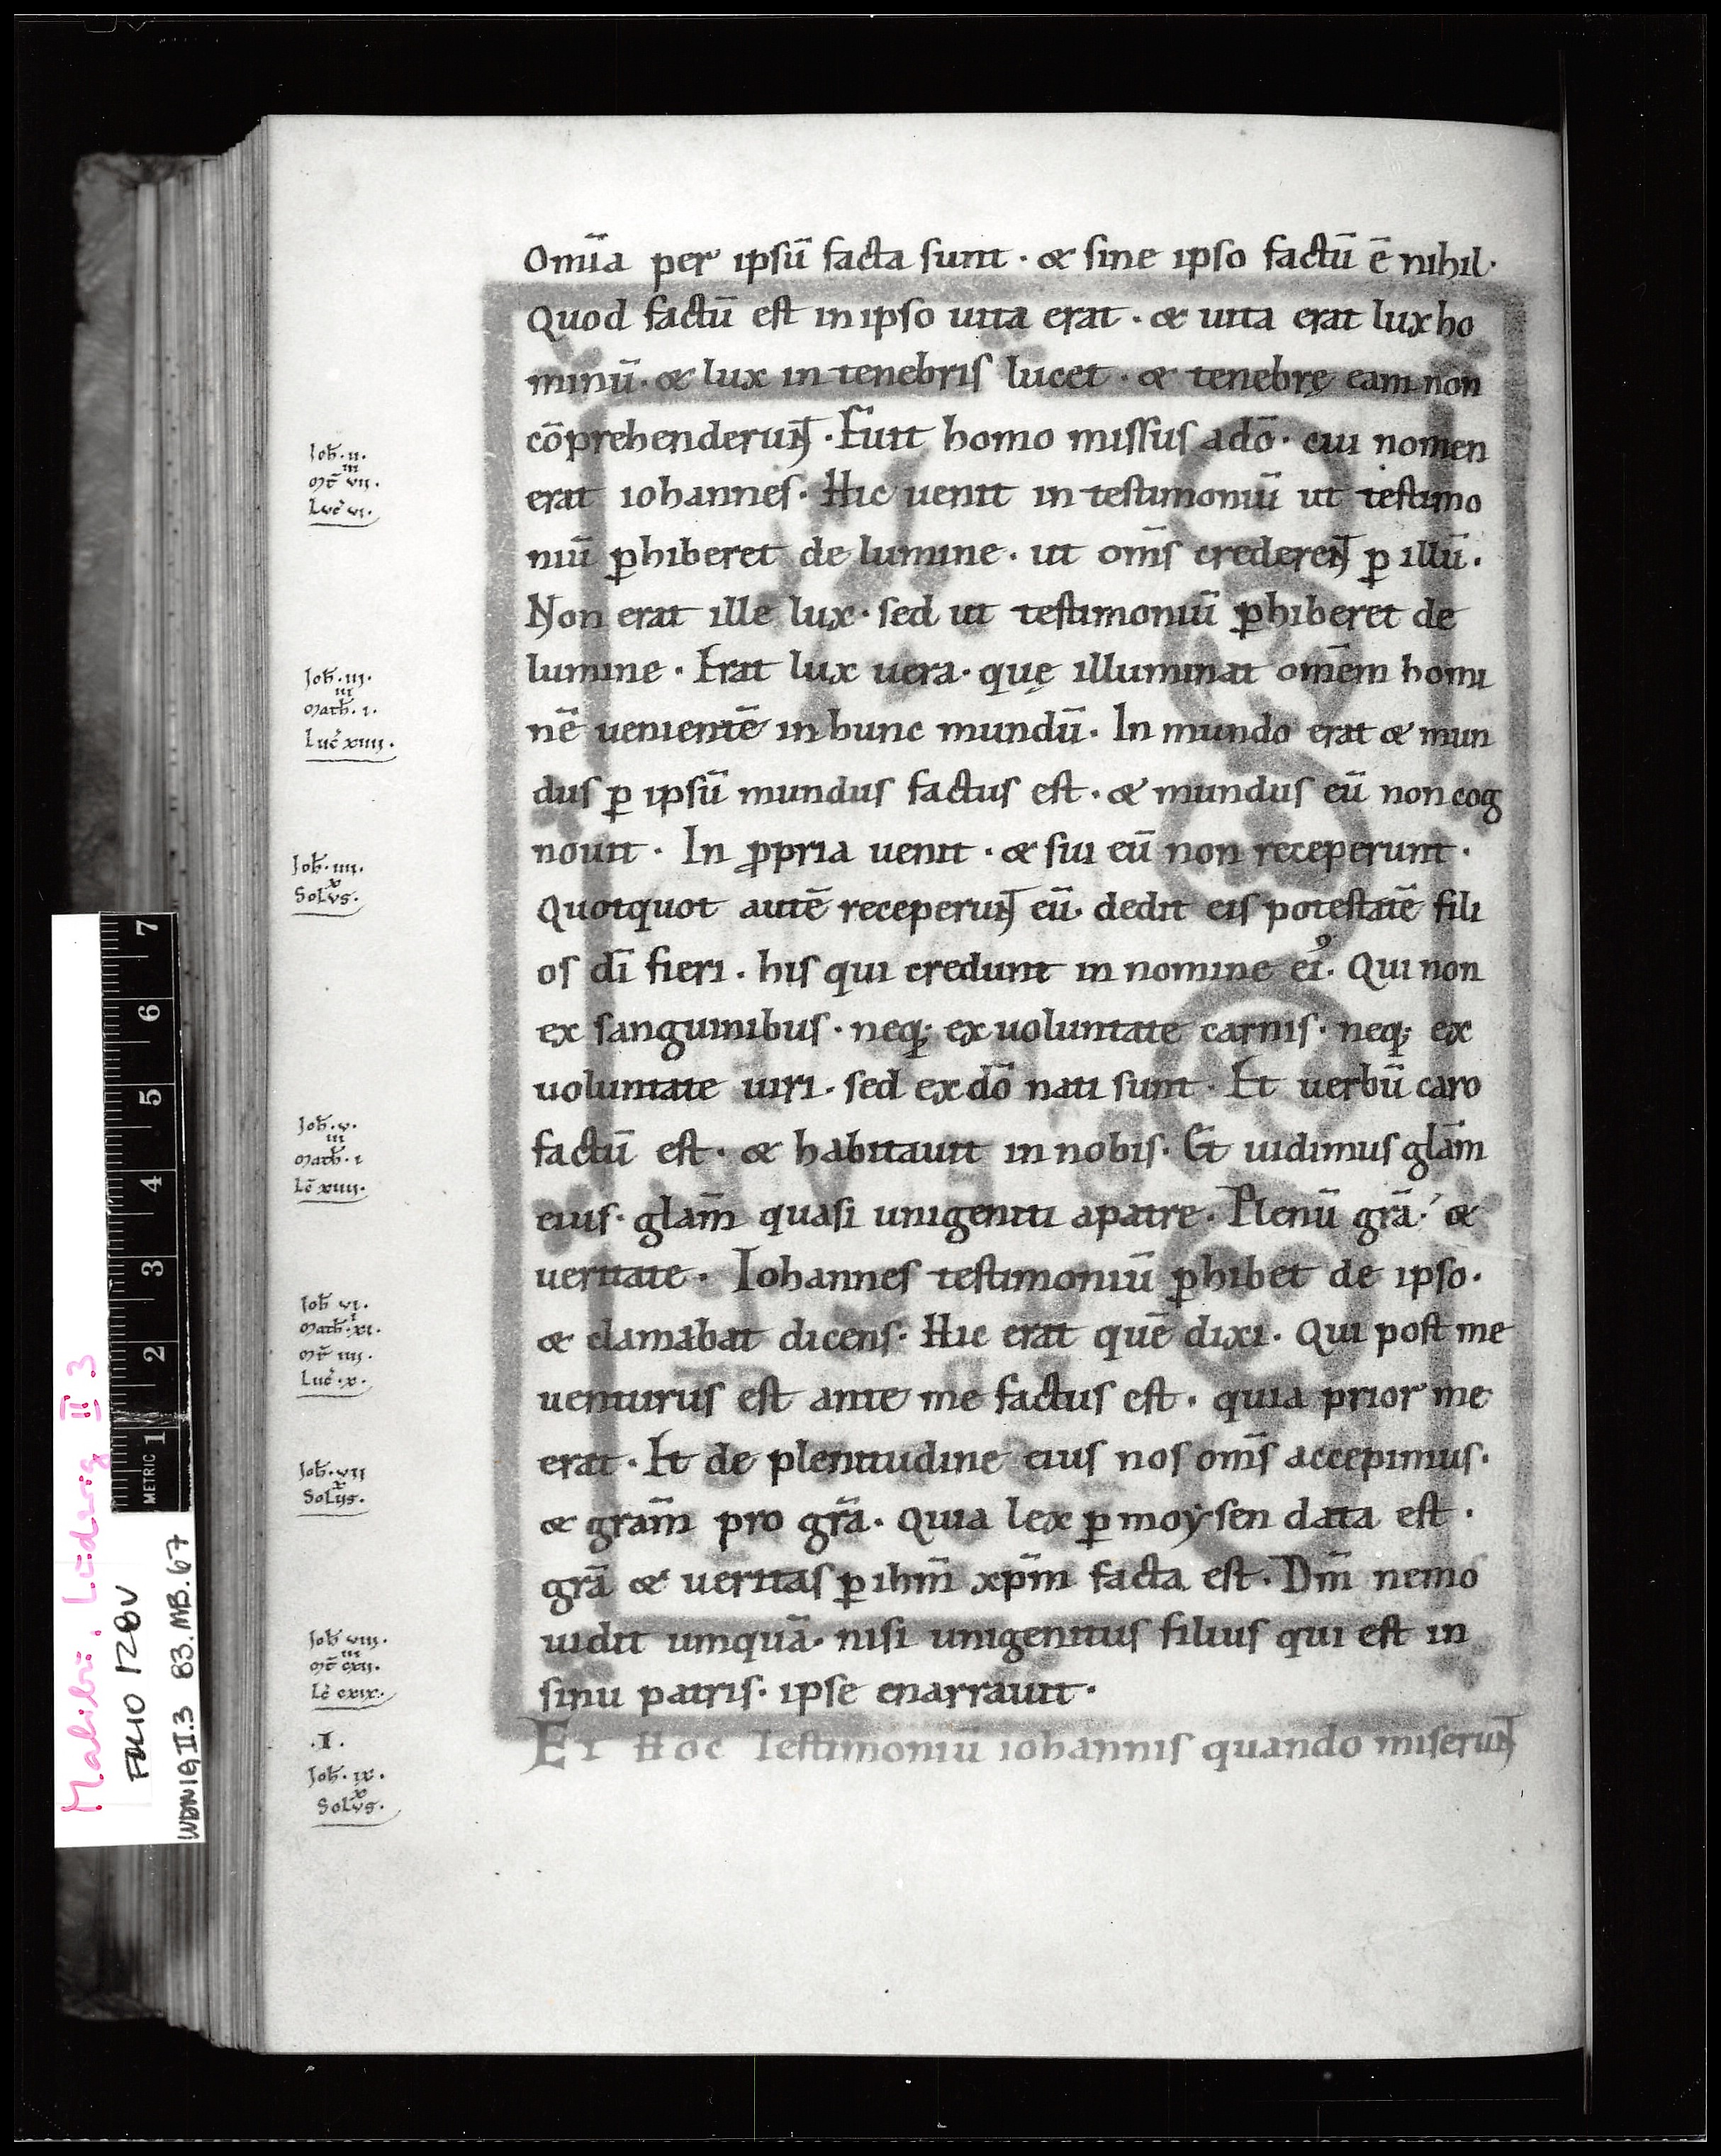 Omīa per ipsū facta sunt · & sine ipso factū ē nihil·
Quod factū est in ipso uita erat · & uita erat lux ho
minū · & lux in tenebris lucet · & tenebrę eam non
cōprehenderunt · Fuit homo missus a dō · cui nomen
erat iohannes · Hic uenit in testimoniū ut testimo
niū ꝑhiberet de lumine · ut om̄s crederent ꝑ illū ·
Non erat ille lux · sed ut testimoniū ꝑhiberet de
lumine · Erat lux uera · quę illuminat omēm homi
nē uenientē in hunc mundū · In mundo erat & mun
dus ꝑ ipsū mundus factus est · & mundus eū non cog
nouit · In ꝓpria uenit · & sui eū non receperunt ·
Quotquot autē receperunt eū · dedit eis potestatē fili
os dī fieri · his qui credunt in nomine eiꝰ · Qui non
ex sanguinibus · neq; ex uoluntate carnis · neq; ex
uoluntate uiri · sed ex dō nati sunt · Et uerbū caro
factū est · & habitauit in nobis · Et uidimus glām
eius · glam̄ quasi unigeniti a patre · Plenū grā · & 
ueritate · Iohannes testimoniū ꝑhibet de ipso ·
& clamabat dicens · Hic erat quē dixi · Qui post me
uenturus est ante me factus est · quia prior me
erat · Et de plenitudine eius nos om̄s accepimus ·
& gram̄ pro grā · Quia lex ꝑ moysen data est ·
grā & ueritas ꝑ ihm̄ xp̄m facta est · Dm̄ nemo
uidit umquā · nisi unigenitus filius qui est in
sinu patris · ipse enarrauit ·
Et Hoc Testimoniū iohannis quando miserunt
Joh̄ · ii ·
iii
Mr̄ vii ·
Luc̄ vi ·
Joh̄ · iii ·
iii
Math̄ · i ·
Luc̄ xiiii ·
Joh̄ · iiii ·
x
Solvs ·
Joh̄ · v ·
iii
Math̄ · i
Lc̄ xiiii ·
Joh̄ vi ·
i
Math̄ · xi ·
Mr̄ iiii ·
Luc̄ · x ·
Joh̄ · vii
x
Solvs ·
Joh̄ viii ·
iii
Mr̄ cxii ·
Lc̄ cxix ·
· I ·
Joh̄ · ix ·
x
Solvs ·
Malibu, Ludwig II 3
FOLIO 128V
WDWIG II.3 83.MB.67
METRIC 1 2 3 4 5 6 7